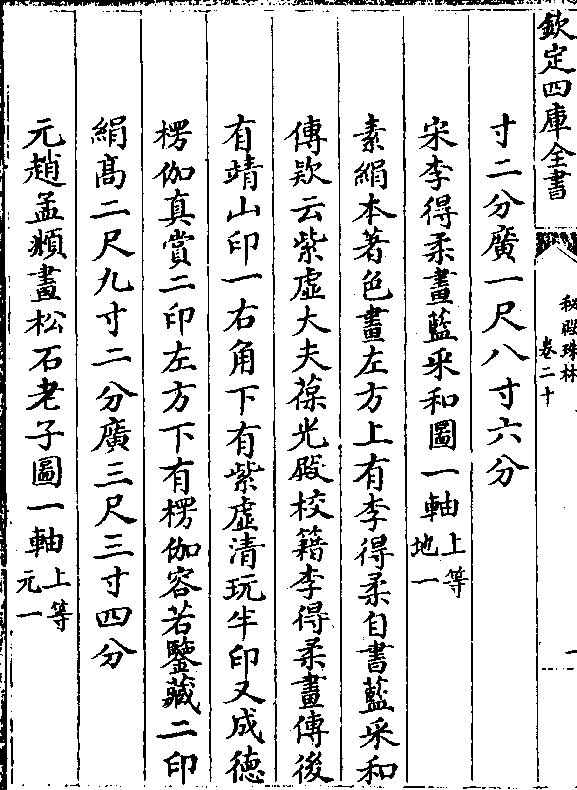 欽定四庫全書
秘殿珠林
卷二十
一
寸二分廣一尺八寸六分
宋李得柔畫藍采和圖一軸上等地一
素絹本著色畫左方上有李得柔自書藍采和
傳款云紫虛大夫葆光殿校籍李得柔畫傳後
有靖山印一右角下有紫虛清玩半印又成德
楞伽真賞二印左方下有楞伽容若鑒藏二印
絹高二尺九寸二分廣三尺三寸四分
元趙孟頫畫松石老子圖一軸上等元一